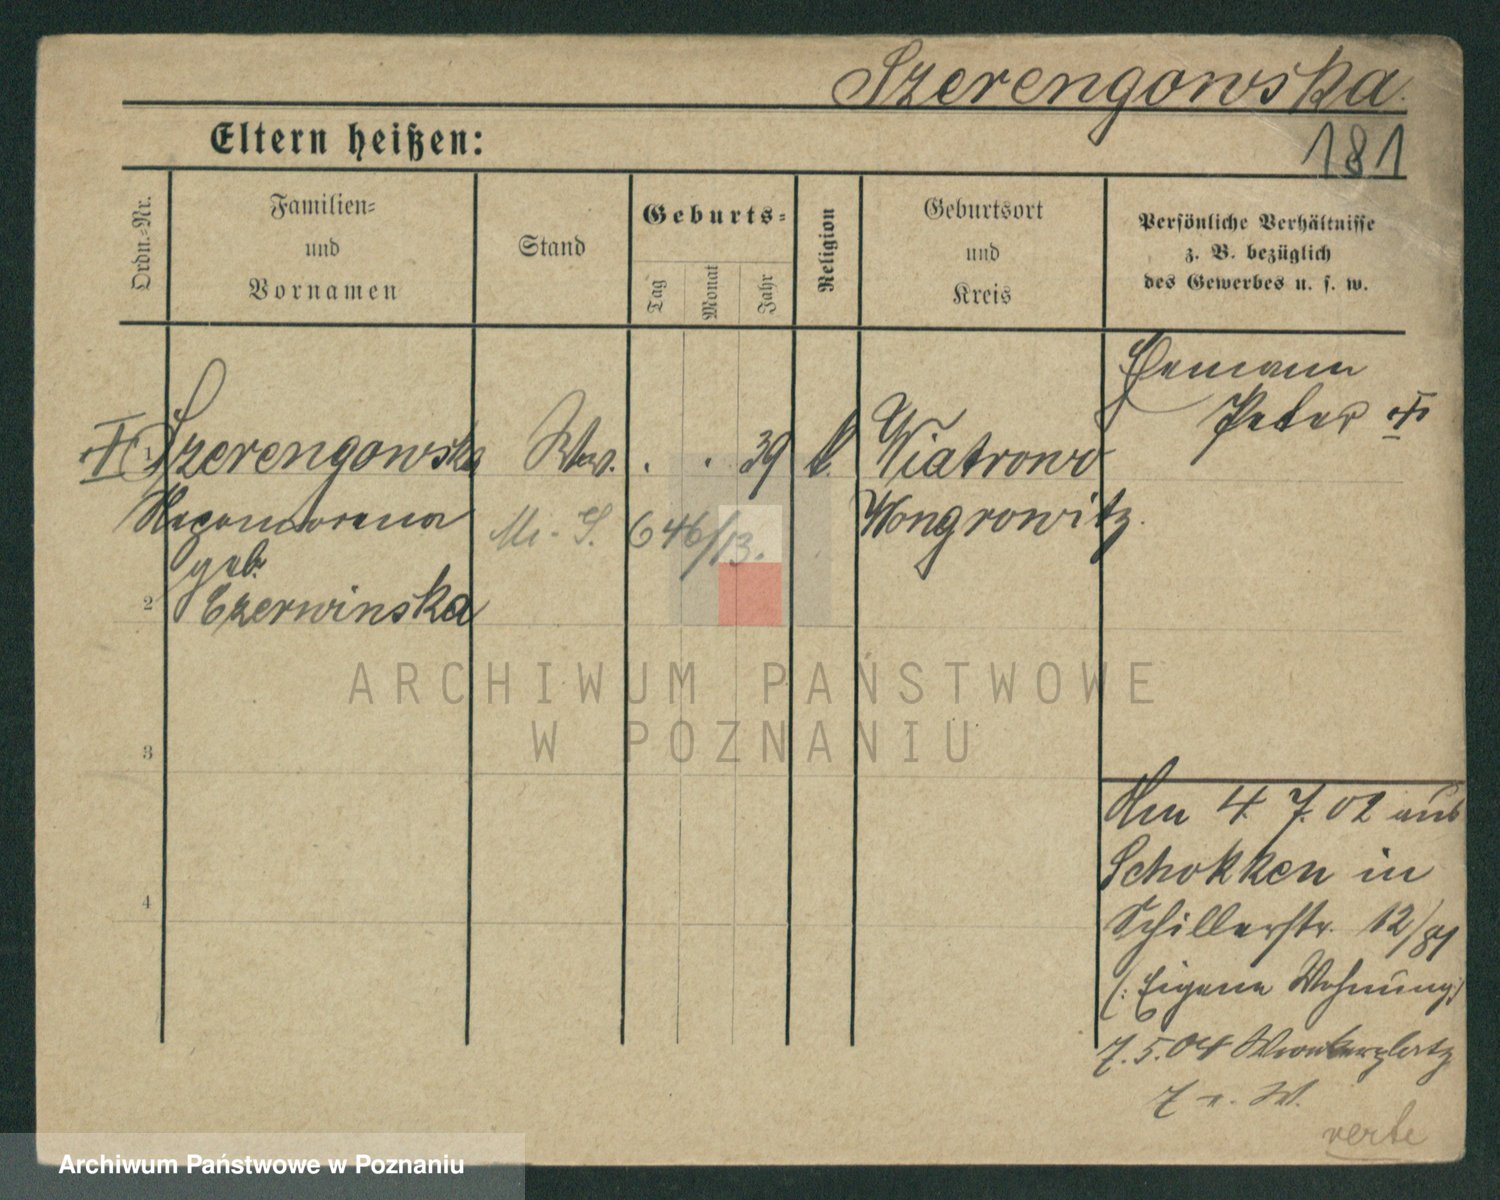 Szerengowska.
Eltern heißen:
181
Ordn.-Nr.
Familien-
und
Vornamen
Stand
Geburts-
Tag
Monat
Jahr
Religion
Geburtsort
und
Kreis
Persönliche Verhältnisse
z. B. bezüglich
des Gewerbes u. s. w.
Hemann
Peter †
† 1 Szerengowska
Ww. . . 39 k.
Wiatrowo
geb.
Czerwinska
646/13.
Wongrowitz.
2
3
4
ARCHIWUM PAŃSTWOWE
W POZNANIU
Am 4. 7. 02 aus
Schokken in
Schillerstr. 12/81
(: Eigene Wohnung :)
7. 5. 04
7 e. W.
verte
Archiwum Państwowe w Poznaniu